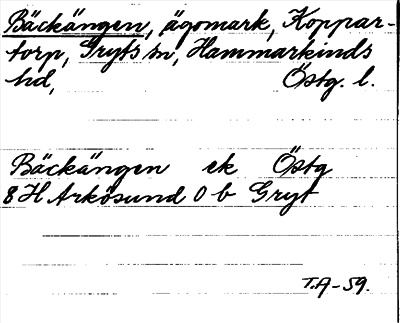 Bäckängen, ägomark, Koppar-
torp, Gryts sn, Hammarkinds
hd, Östg. l.
Bäckängen ek Östg
8 H Arkösund O b Gryt
T.A-59.